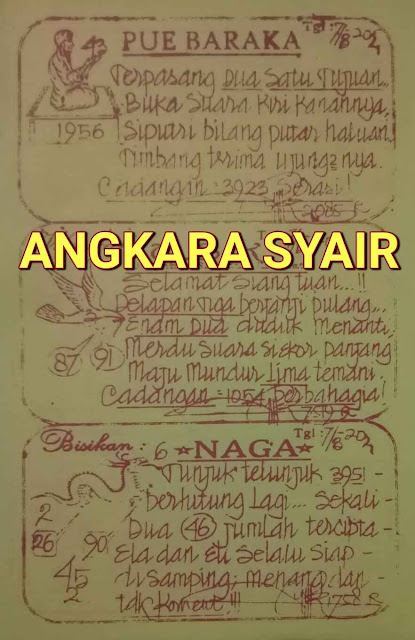 PUE BARAKA
Tgl: 7/8-202
1956
Terpasang Dua Satu Tujuan...
Buka Suara Kiri Kanannya,
Siputri bilang putar haluan
Timbang terima ujung2 nya.
Cadangan : 3923 Serasi!
2085
ANGKARA SYAIR
Selamat Siang tuan...!!
Delapan Tiga berjanji pulang...
Enam Dua duduk menanti.
Merdu Suara Siekor Panjang
Maju Mundur Lima temani.
Cadangan = 1054 berbahagia!
87 91
Bisikan : 6 ★NAGA★
Tgl: 7/8-202
Tunjuk telunjuk 3951-
berhitung lagi... Sekali-
Dua 46 jumlah tercipta-
Ela dan Eti Selalu Siap-
di Samping, menang dan-
tak koment!!!
1758
2
26 90
45
2